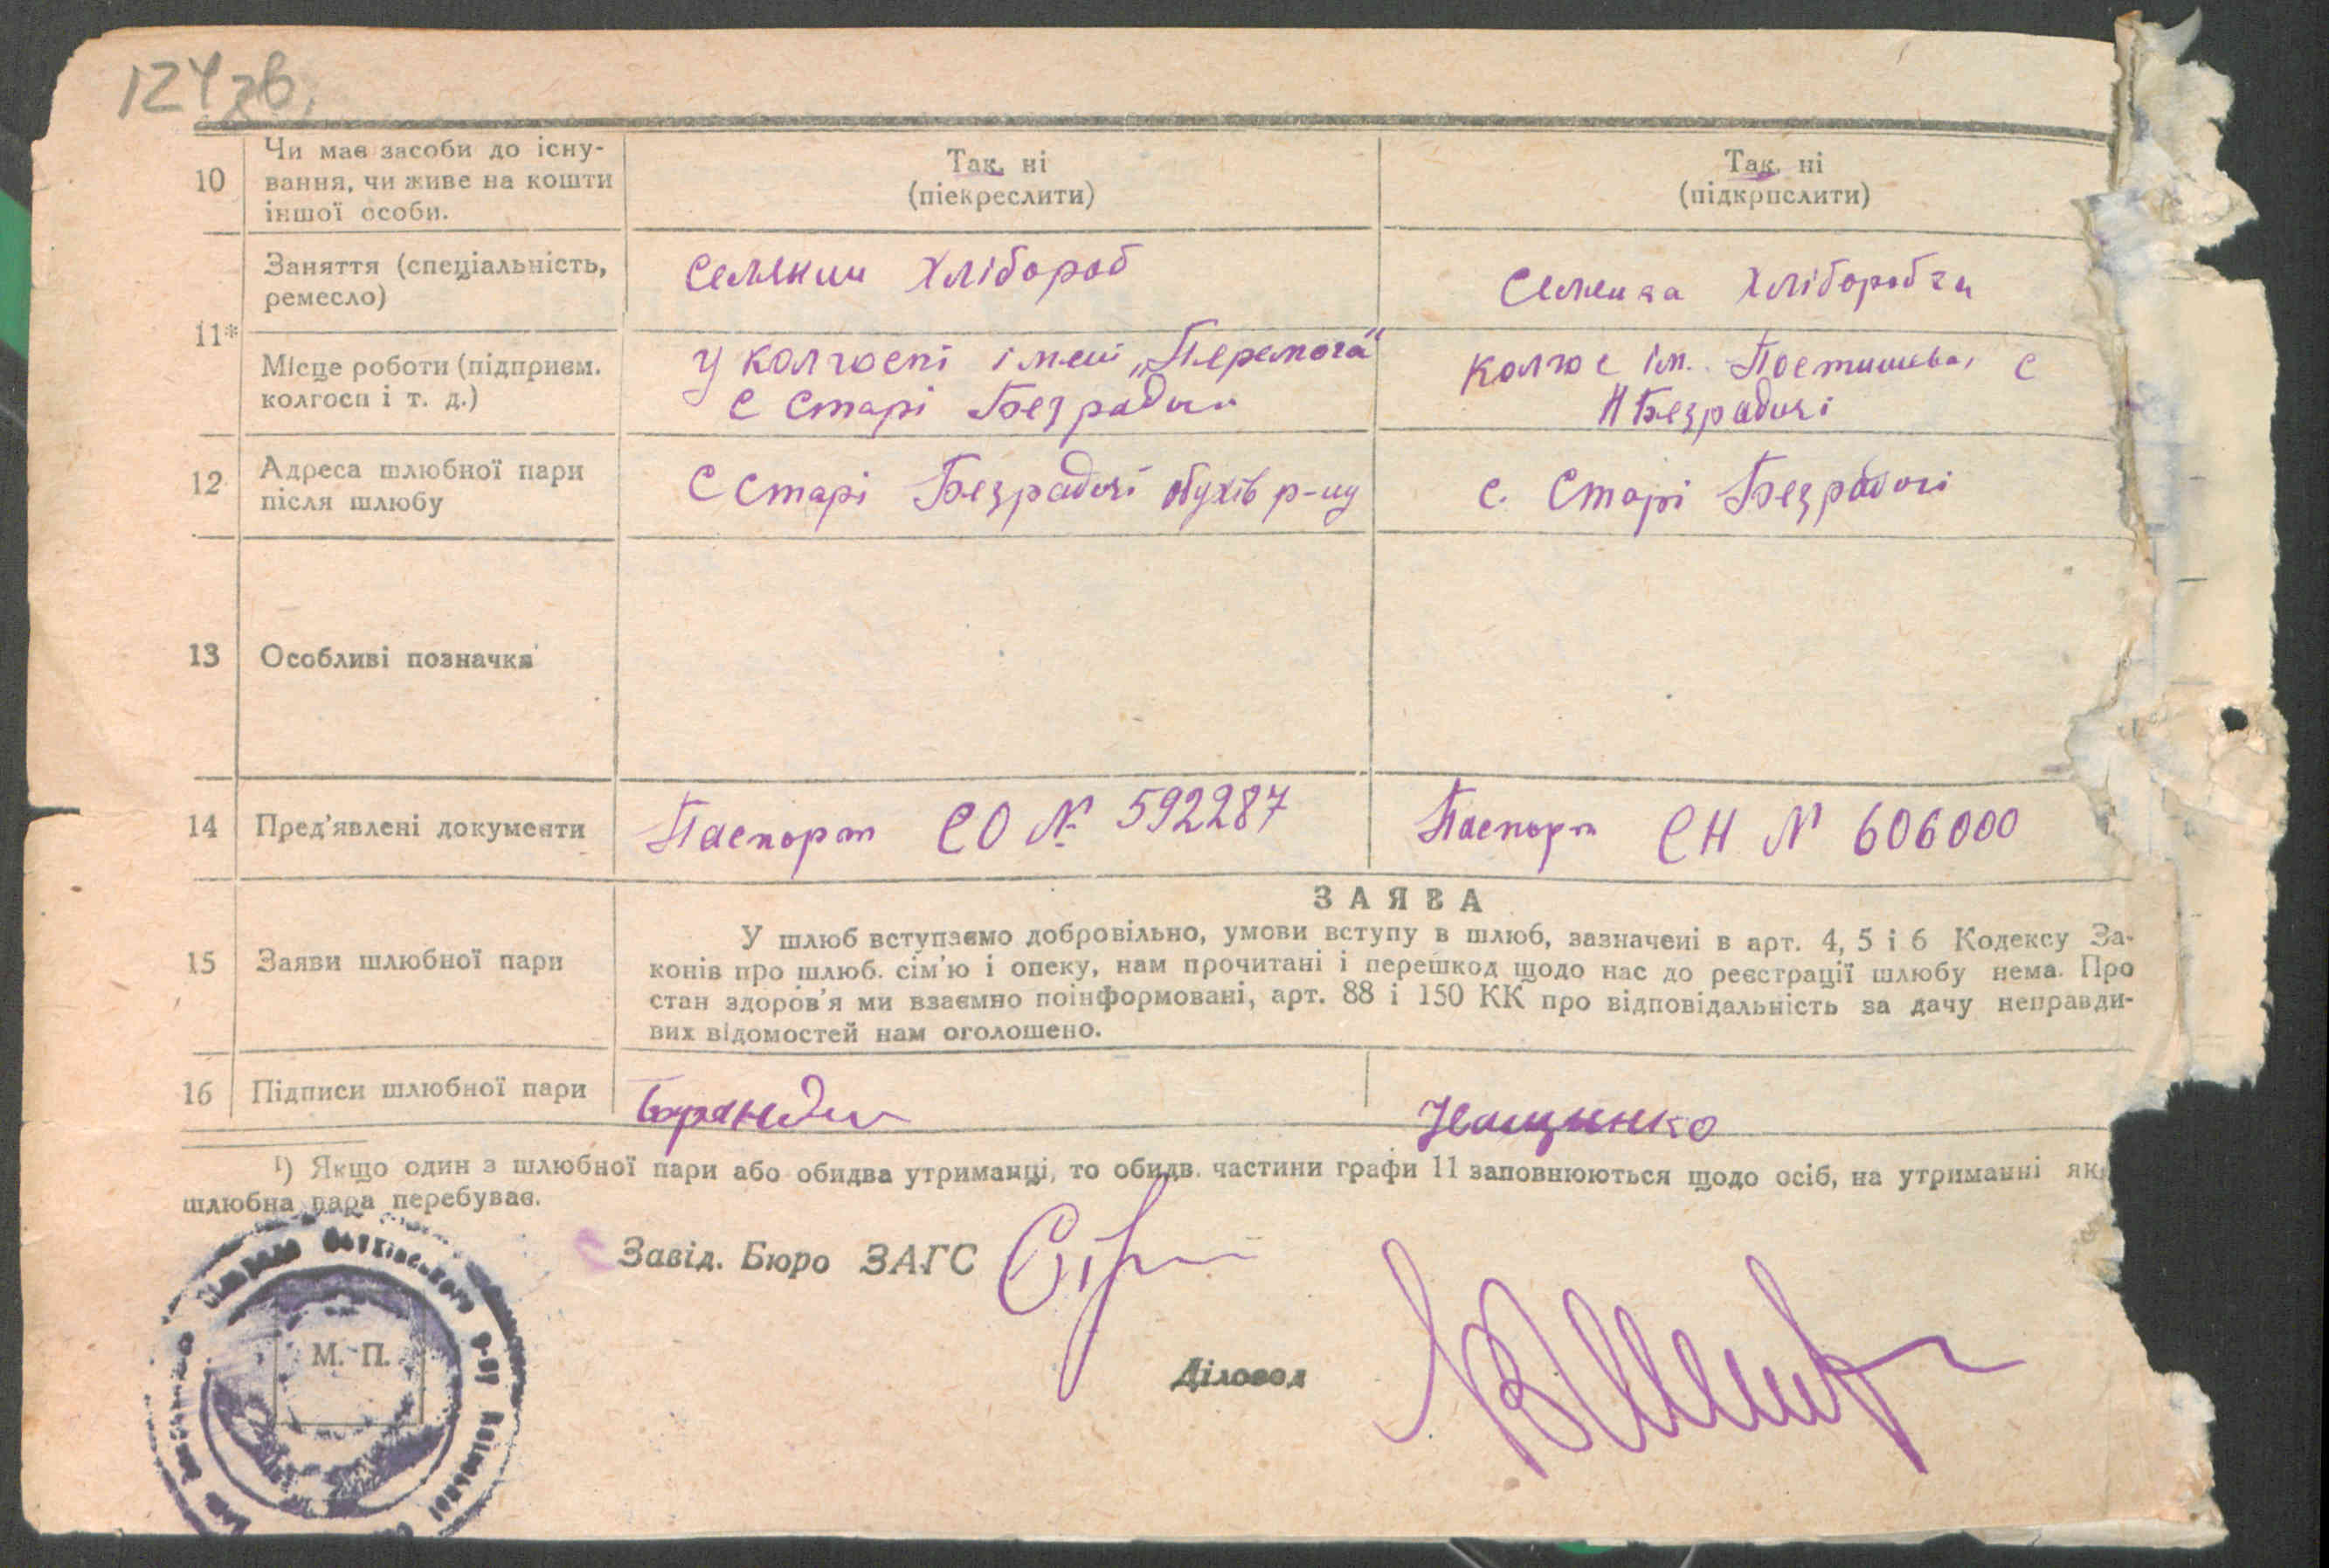 124 зв.
10 Чи має засоби до існу- Так, ні Так, ні
вання, чи живе на кошти (піекреслити) (підкрпслити)
іншої особи.
Заняття (спеціальність, Селянин Хлібороб Селянка Хліборобка
ремесло)
11*
Місце роботи (підприєм. У колгоспі імені „Перемога" колгос ім. Постишева, с
колгосп і т. д.) с Старі Безрадичі Н Безрадичі
12 Адреса шлюбної пари с Старі Безрадичі обухів р-ну с. Старі Безрадичі
після шлюбу
13 Особливі позначки
14 Пред'явлені документи Паспорт СО № 592287 Паспорт СН N 606000
ЗАЯВА
15 Заяви шлюбної пари У шлюб вступаємо добровільно, умови вступу в шлюб, зазначені в арт. 4, 5 і 6 Кодексу За-
конів про шлюб. сім'ю і опеку, нам прочитані і перешкод щодо нас до реєстрації шлюбу нема. Про
стан здоров'я ми взаємно поінформовані, арт. 88 і 150 КК про відповідальність за дачу неправди-
вих відомостей нам оголошено.
16 Підписи шлюбної пари
¹) Якщо один з шлюбної пари або обидва утриманці, то обидв. частини графи 11 заповнюються щодо осіб, на утриманні як
шлюбна пара перебуває.
Завід. Бюро ЗАГС
М. П.
Діловод